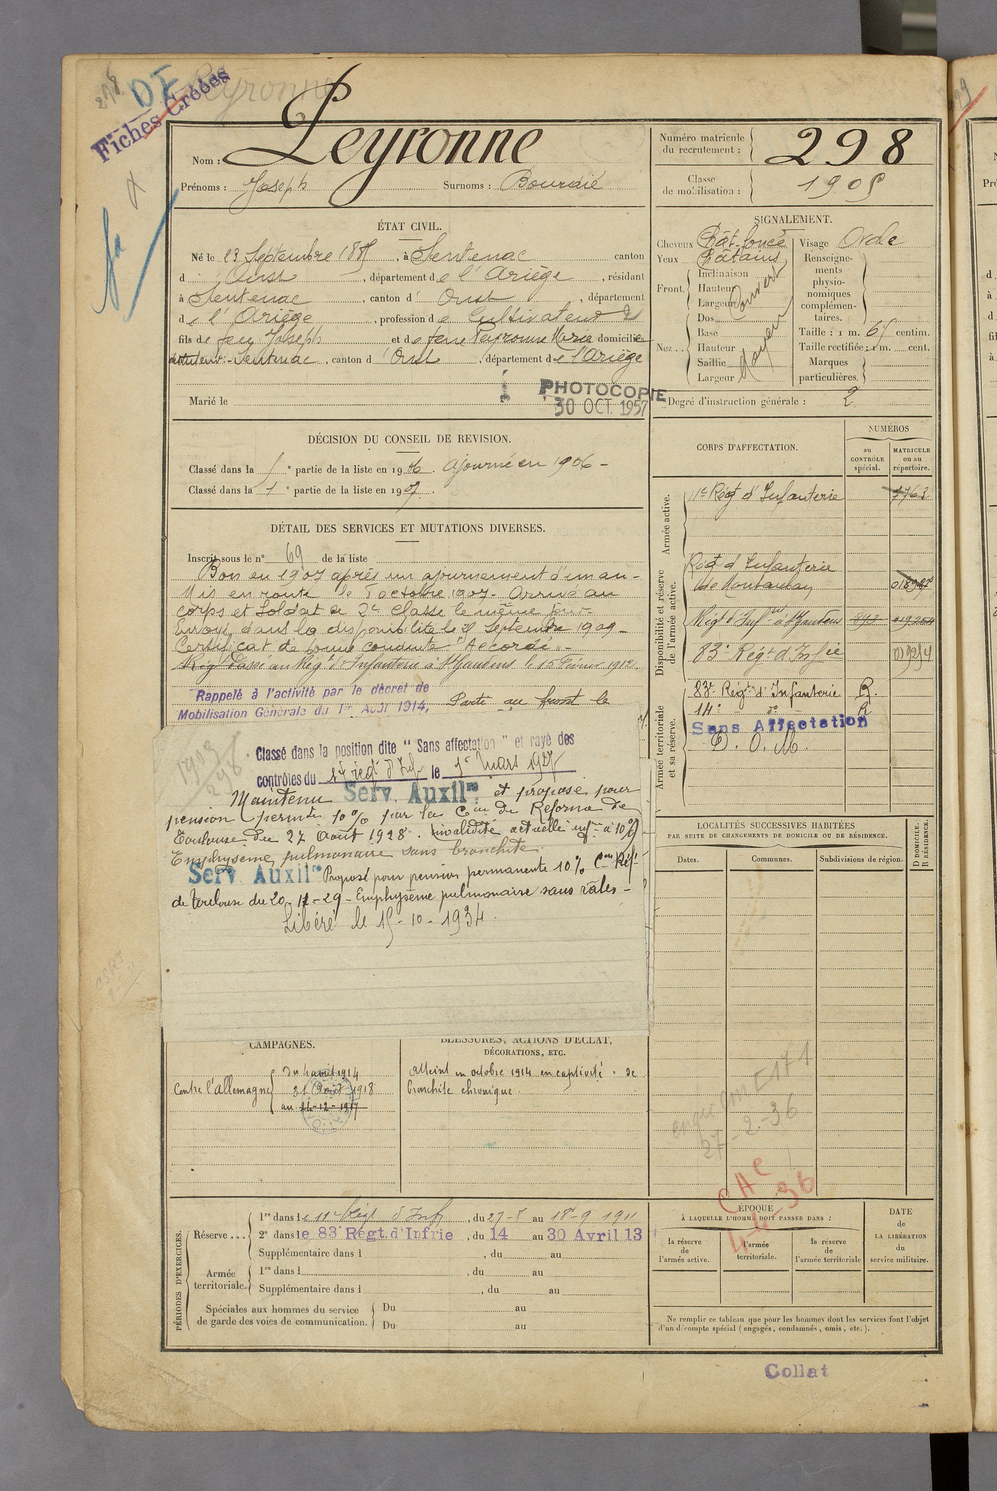 298
DE
Fiches Créées
Peyronne
Nom : Peyronne
Prénoms : Joseph Surnoms : Bouraié
Numéro matricule du recrutement : 298
Classe de mobilisation : 1905
ÉTAT CIVIL.
Né le 23 Septembre 1885, à Sentenac canton
d'Oust, département de l'Ariège, résidant
à Sentenac, canton d'Oust, département
de l'Ariège, profession de Cultivateur
fils de feu Joseph et de feue Peyronne Marie domiciliés
Sentenac, canton d'Oust, département de l'Ariège
PHOTOCOPIE
30 OCT. 1957
Marié le
SIGNALEMENT.
Cheveux Chât. foncé
Yeux Châtains
Front. Inclinaison Hauteur Largeur Couvert
Nez... Dos Base Hauteur Saillie Largeur Moyen
Visage Ovale
Renseignements physionomiques complémentaires.
Taille : 1 m. 65 centim.
Taille rectifiée : 1 m. cent.
Marques particulières.
Degré d'instruction générale : 2
DÉCISION DU CONSEIL DE REVISION.
Classé dans la 5e partie de la liste en 1906. Ajourné en 1906 -
Classé dans la 1e partie de la liste en 1907.
DÉTAIL DES SERVICES ET MUTATIONS DIVERSES.
Inscrit sous le n° 69 de la liste
Bon en 1907 après un ajournement d'un an -
Mis en route le octobre 1907 - Arrivé au
corps et Soldat de 2e classe le même jour -
Envoyé dans la disponibilité le 25 Septembre 1909 -
Certificat de bonne conduite "Accordé" -
Passé au Rég. d'Infanterie à St Gaudens le 15 Février 1912.
Rappelé à l'activité par le décret de
Mobilisation Générale du 1er Août 1914, Parti au front le
1903
298
Classé dans la position dite "Sans affectation" et rayé des
contrôles du 14e rég. d'Inf. le 1er Mars 1927
Maintenu Serv. Auxilre et proposé pour
pension permte 10% par la Con de Réforme de
Toulouse du 27 Août 1928. Invalidité actuelle infre à 10%
Emphysème pulmonaire sans bronchite.
Serv. Auxilre Proposé pour pension permanente 10% Con Réfe
de Toulouse du 20-12-29 - Emphysème pulmonaire sans râles -
Libéré le 15-10-1934.
CORPS D'AFFECTATION.
NUMÉROS
au CONTRÔLE spécial.
MATRICULE ou au répertoire.
Armée active.
11e Rég. d'Infanterie
Disponibilité et réserve de l'armée active.
Rég. d'Infanterie
de Montauban
Régt d'Infrie à St Gaudens
83e Régt d'Infie
Armée territoriale et sa réserve.
83e Régt d'Infanterie R.
14e do R
Sans Affectation
D. O. M.
LOCALITÉS SUCCESSIVES HABITÉES
PAR SUITE DE CHANGEMENTS DE DOMICILE OU DE RÉSIDENCE.
Dates. Communes. Subdivisions de région. D DOMICILE. R RÉSIDENCE.
CAMPAGNES.
Contre l'Allemagne
Du 4 août 1914
31 Août 1918
au 24-12-1917
BLESSURES, ACTIONS D'ÉCLAT,
DÉCORATIONS, ETC.
Atteint en octobre 1914 en captivité de
bronchite chronique.
27-2-36
CAe
ÉPOQUE
À LAQUELLE L'HOMME DOIT PASSER DANS :
la réserve de l'armée active.
l'armée territoriale.
la réserve de l'armée territoriale
DATE DE LA LIBÉRATION du service militaire.
PÉRIODES D'EXERCICES.
Réserve... 1re dans le 11e Régt d'Inf, du 27-8 au 18-9 1911
2e dans le 83 Régt.d'Infrie, du 14 au 30 Avril 13
Supplémentaire dans l , du au
Armée territoriale. 1re dans l , du au
Supplémentaire dans l , du au
Spéciales aux hommes du service de garde des voies de communication.
Du au
Du au
Ne remplir ce tableau que pour les hommes dont les services font l'objet
d'un décompte spécial (engagés, condamnés, omis, etc.).
Collat